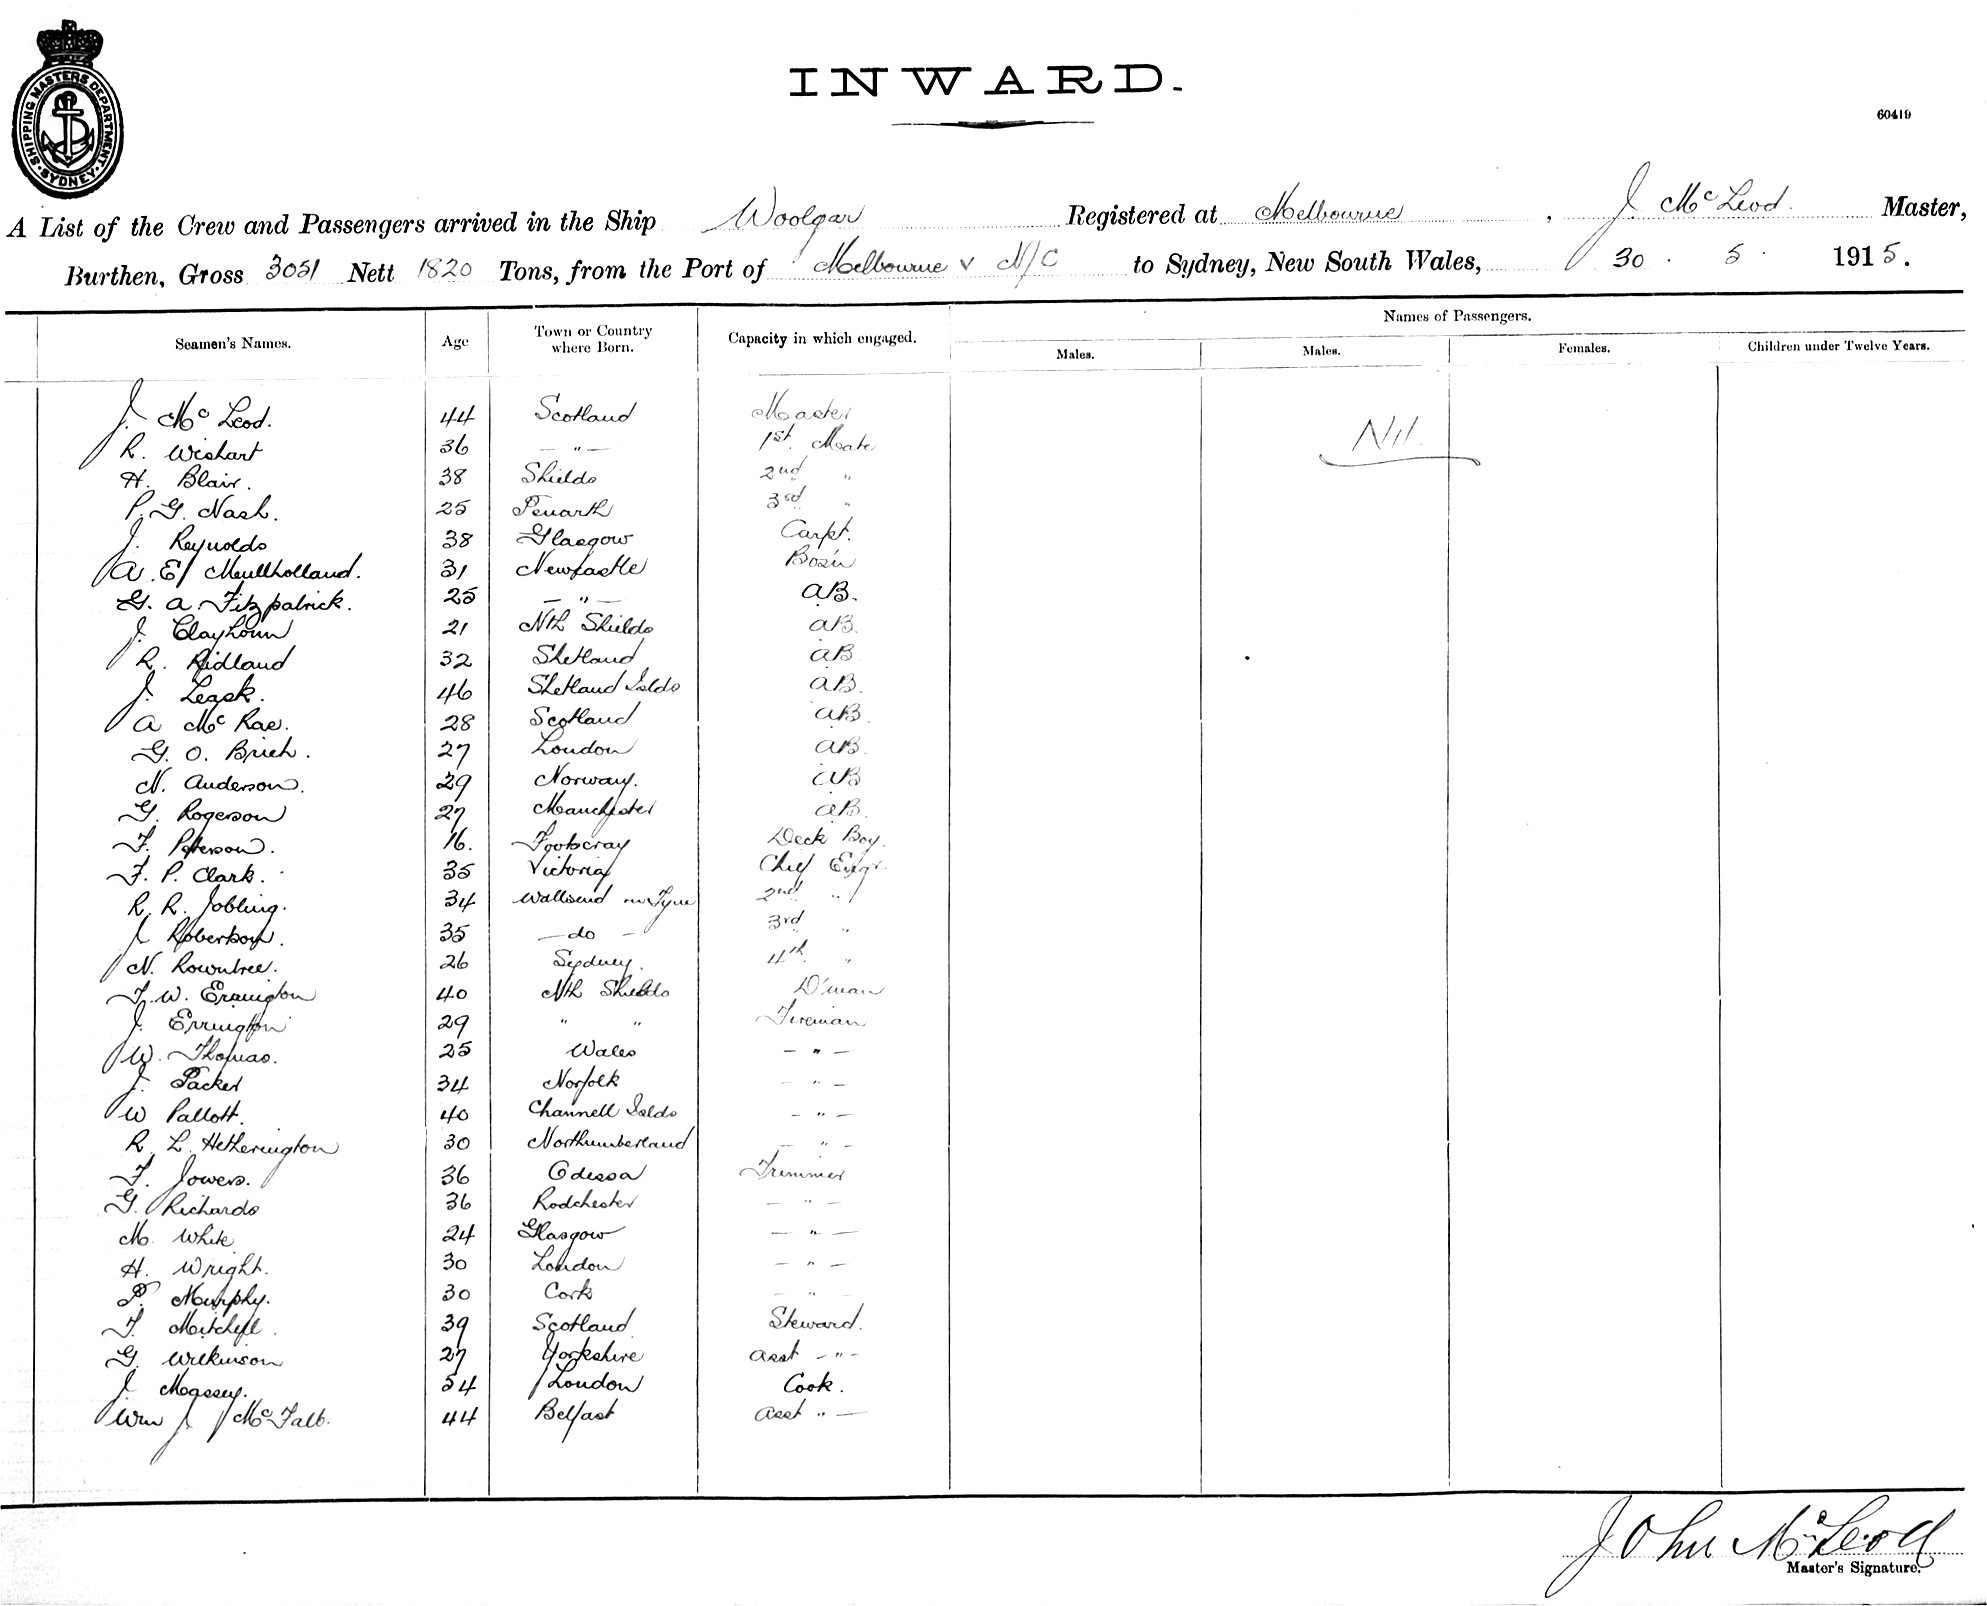 SHIPPING MASTERS DEPARTMENT · SYDNEY ·
INWARD.
60419
A List of the Crew and Passengers arrived in the Ship Woolgar Registered at Melbourne, J. McLeod. Master,
Burthen, Gross 3051 Nett 1820 Tons, from the Port of Melbourne v N/C to Sydney, New South Wales, 30. 5. 1915.
Seamen's Names. Age Town or Country where Born. Capacity in which engaged. Names of Passengers.
Males. Males. Females. Children under Twelve Years.
J. McLeod. 44 Scotland Master Nil.
R. Wishart 36 — " — 1st. Mate
H. Blair. 38 Shields 2nd "
P. G. Nash. 25 Penarth 3rd "
J. Reynolds 38 Glasgow Carpt.
A. E. Mullholland. 31 Newcastle Bos'n
G. A. Fitzpatrick. 25 — " — AB.
J. Clayhorn 21 Nth Shields AB.
R. Ridland 32 Shetland AB
J. Leask. 46 Shetland Islds AB.
A McRae. 28 Scotland AB.
G. O. Brieh. 27 London AB.
N. Anderson. 29 Norway. AB
G. Rogerson 27 Manchester AB.
F. Peterson. 16. Footscray Deck Boy.
F. P. Clark. 35 Victoria Chief Engr.
R. R. Jobling. 34 Wallsend on Tyne 2nd "
J. Robertson. 35 — do — 3rd "
N. Rowntree. 26 Sydney. 4th "
T. W. Errington 40 Nth Shields D'man
J. Errington 29 " " Fireman
W. Thomas. 25 Wales — " —
J. Packer 34 Norfolk — " —
W Pallott. 40 Channell Islds — " —
R. L. Hetherington 30 Northumberland — " —
F. Jowers. 36 Odessa Trimmer
G. Richards 36 Rodchester — " —
M. White 24 Glasgow — " —
H. Wright. 30 London — " —
P. Murphy. 30 Cork — "
T. Mitchell. 39 Scotland Steward.
G. Wilkinson 27 Yorkshire Asst — " —
J. Massey. 54 London Cook.
Wm J McFalls. 44 Belfast Asst " —
John McLeod
Master's Signature.